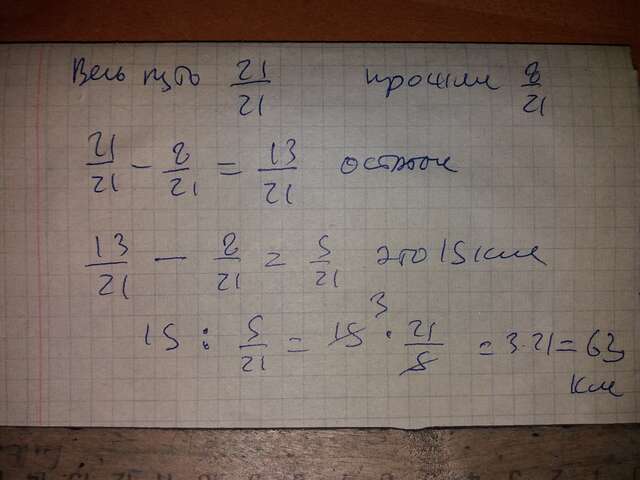 Весь путь 21/21 прошли 8/21
21/21 - 8/21 = 13/21 остаток
13/21 - 8/21 = 5/21 это 15 км
15 : 5/21 = 15 3 · 21/5 = 3·21 = 63
км